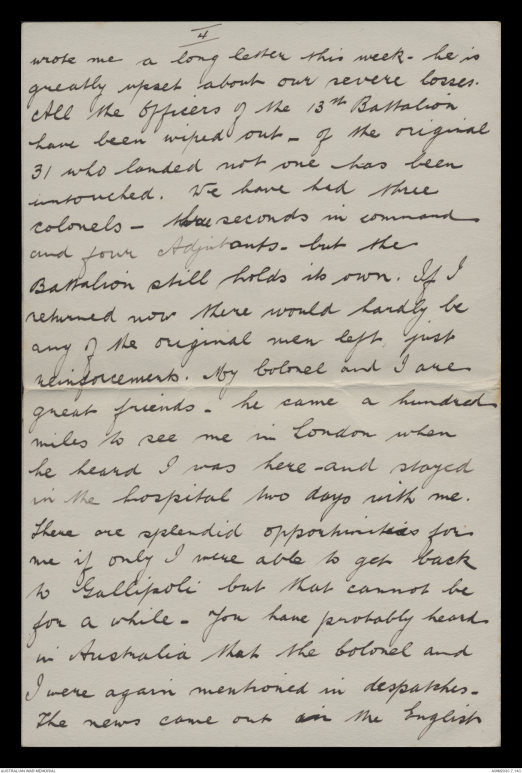 4
wrote me a long letter this week - he is
greatly upset about our severe losses.
All the Officers of the 13th Battalion
have been wiped out - of the original
31 who landed not one has been
untouched. We have had three
colonels - three seconds in command
and four Adjutants - but the
Battalion still holds its own. If I
returned now there would hardly be
any of the original men left, just
reinforcements. My Colonel and I are
great friends - he came a hundred
miles to see me in London when
he heard I was here - and stayed
in the hospital two days with me.
There are splendid opportunities for
me if only I were able to get back
to Gallipoli but that cannot be
for a while - You have probably heard
in Australia that the Colonel and
I were again mentioned in despatches -
The news came out in the English
AUSTRALIAN WAR MEMORIAL